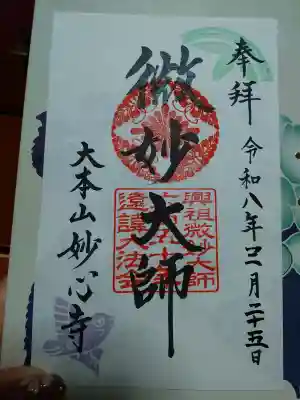 奉拝 令和八年三月二十五日
微妙大師
興祖微妙大師
遠諱大法会
大本山妙心寺